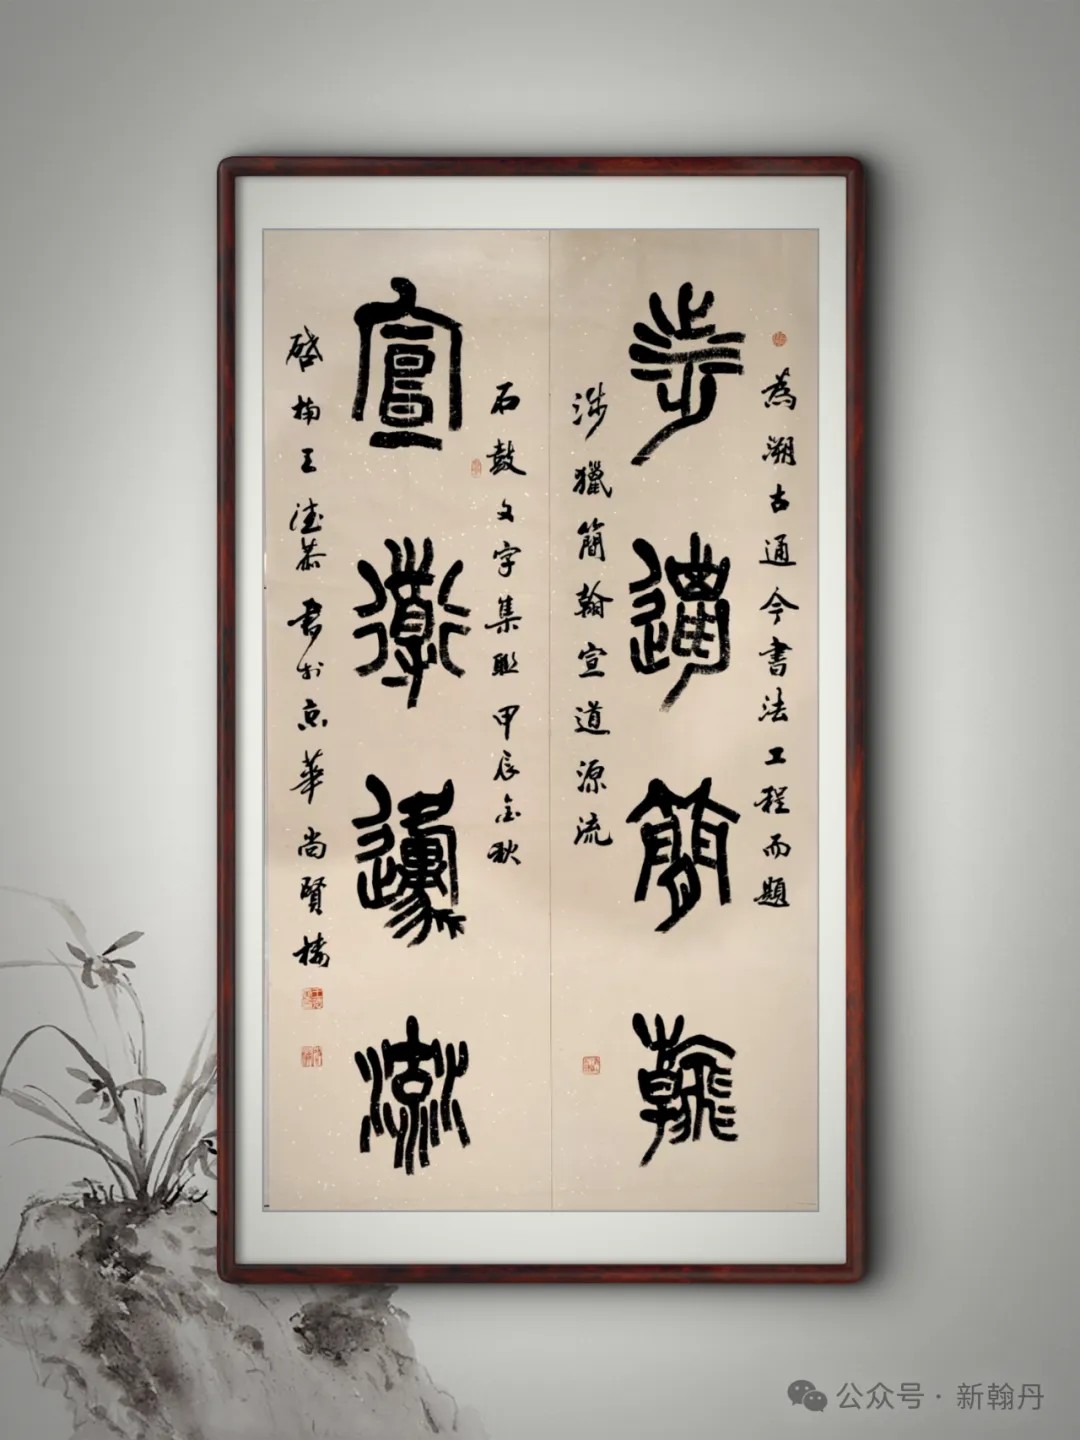 為溯古通今書法工程而題
涉獵簡翰
涉獵簡翰宣道源流
石鼓文字集聯甲辰金秋
宣道源流
啓楠王德恭書於京華尚賢樓
公众号·新翰丹